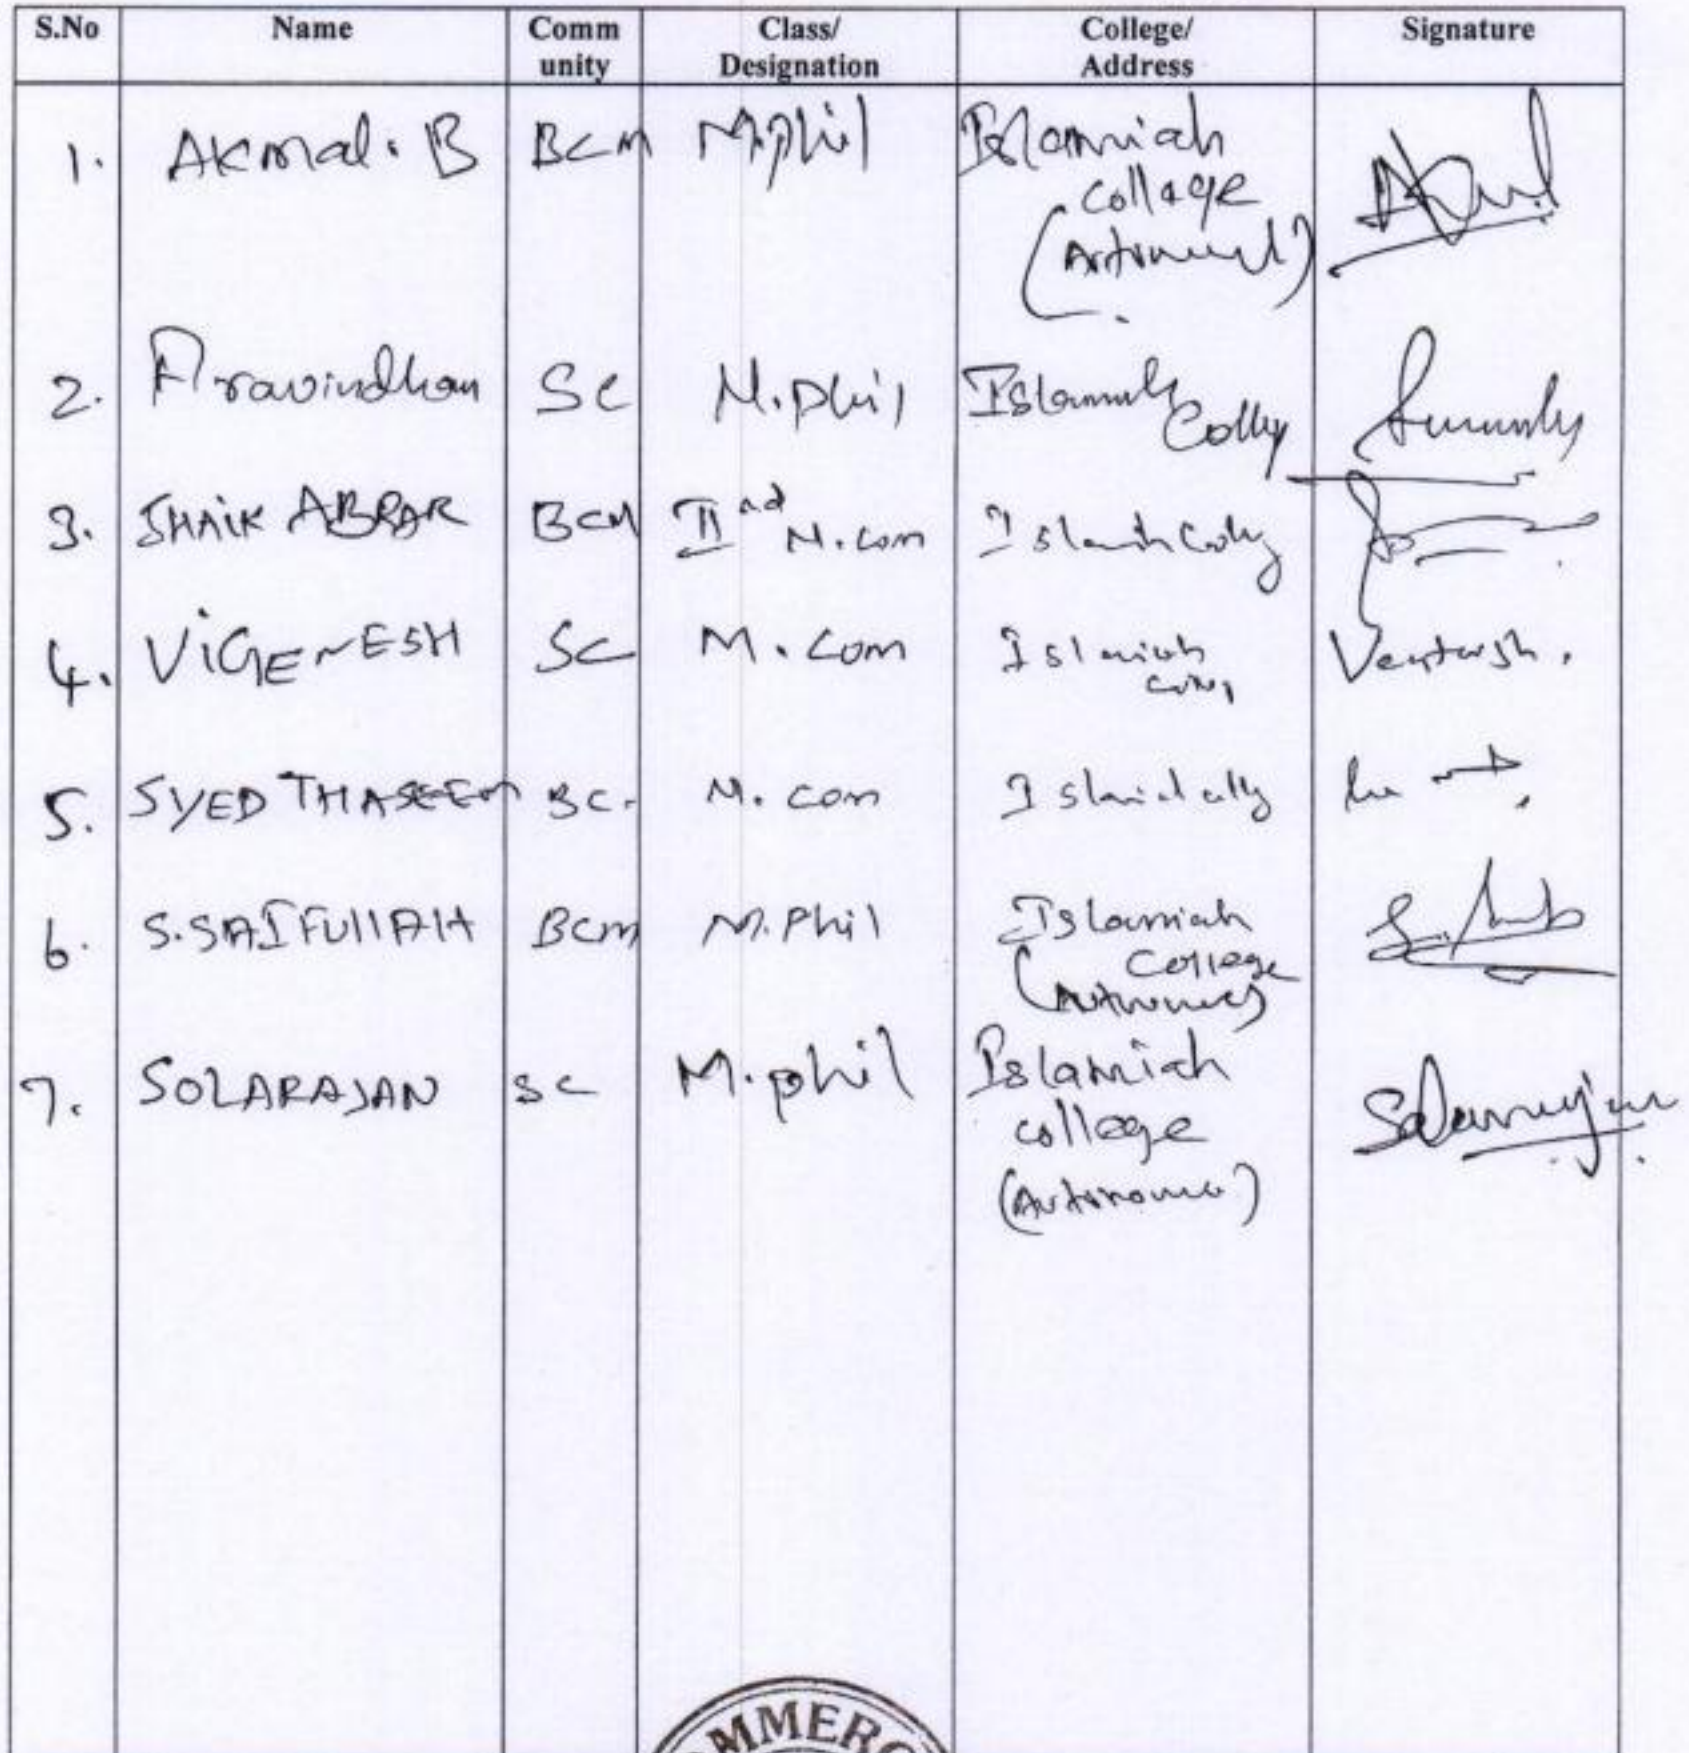 S.No Name Comm unity Class/ Designation College/ Address Signature
1. Akmal. B BCM M.phil Islamiah
college
(Autonomous)
2. Aravindhan SC M.phil Islamiah
College
3. SHAIK ABRAR BCM IInd M.com Islamiah College
4. ViGENESH SC M.com Islamiah
5. SYED THASEEM BC. M.com
6. S.SAIFUllAH BCM M.Phil Islamiah
College
(Autonomous)
7. SOLARAJAN SC M.phil Islamiah
college
(Autonomous)
Solarajan
MMERC